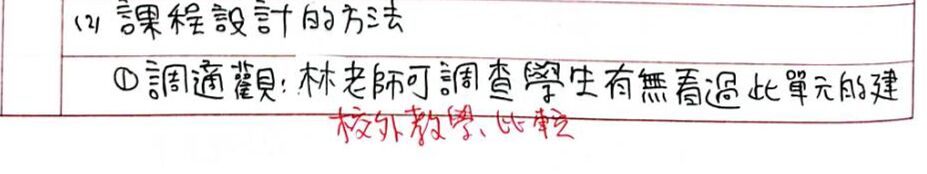 (2) 課程設計的方法
①調適觀:林老師可調查學生有無看過此單元的建
校外教學、比較